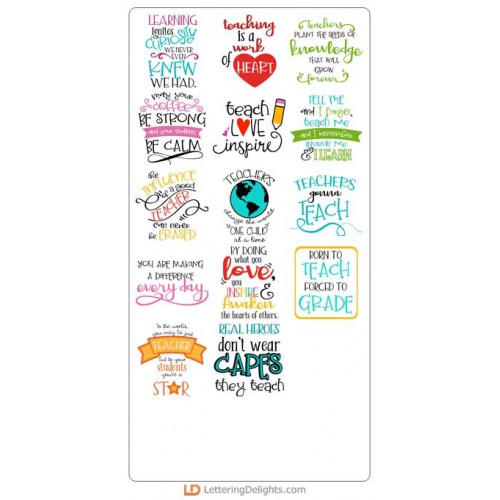 LEARNING
Ignites
CURIOSITY
WE NEVER
EVEN
KNEW
WE HAD.
teaching
IS A
work
of HEART
Teachers
PLANT THE SEEDS OF
knowledge
THAT WILL
GROW
forever
may your
COFFEE
BE STRONG
and your students
BE CALM
teach
LOVE
inspire
TELL ME
and I forget,
teach me
and I remember
involve me
& I LEARN
the
INFLUENCE
of a good
TEACHER
can never
be ERASED
TEACHERS
change the world
ONE CHILD
at a time
TEACHERS
gonna
TEACH
YOU ARE MAKING
A DIFFERENCE
every day
BY DOING
what you
love,
you
INSPIRE &
Awaken
the hearts of others.
BORN TO
TEACH
FORCED TO
GRADE
To the world
you may be just
TEACHER
but to your
students
you're a
STAR
REAL HEROES
don't WEAR
CAPES
they teach
LD LetteringDelights.com